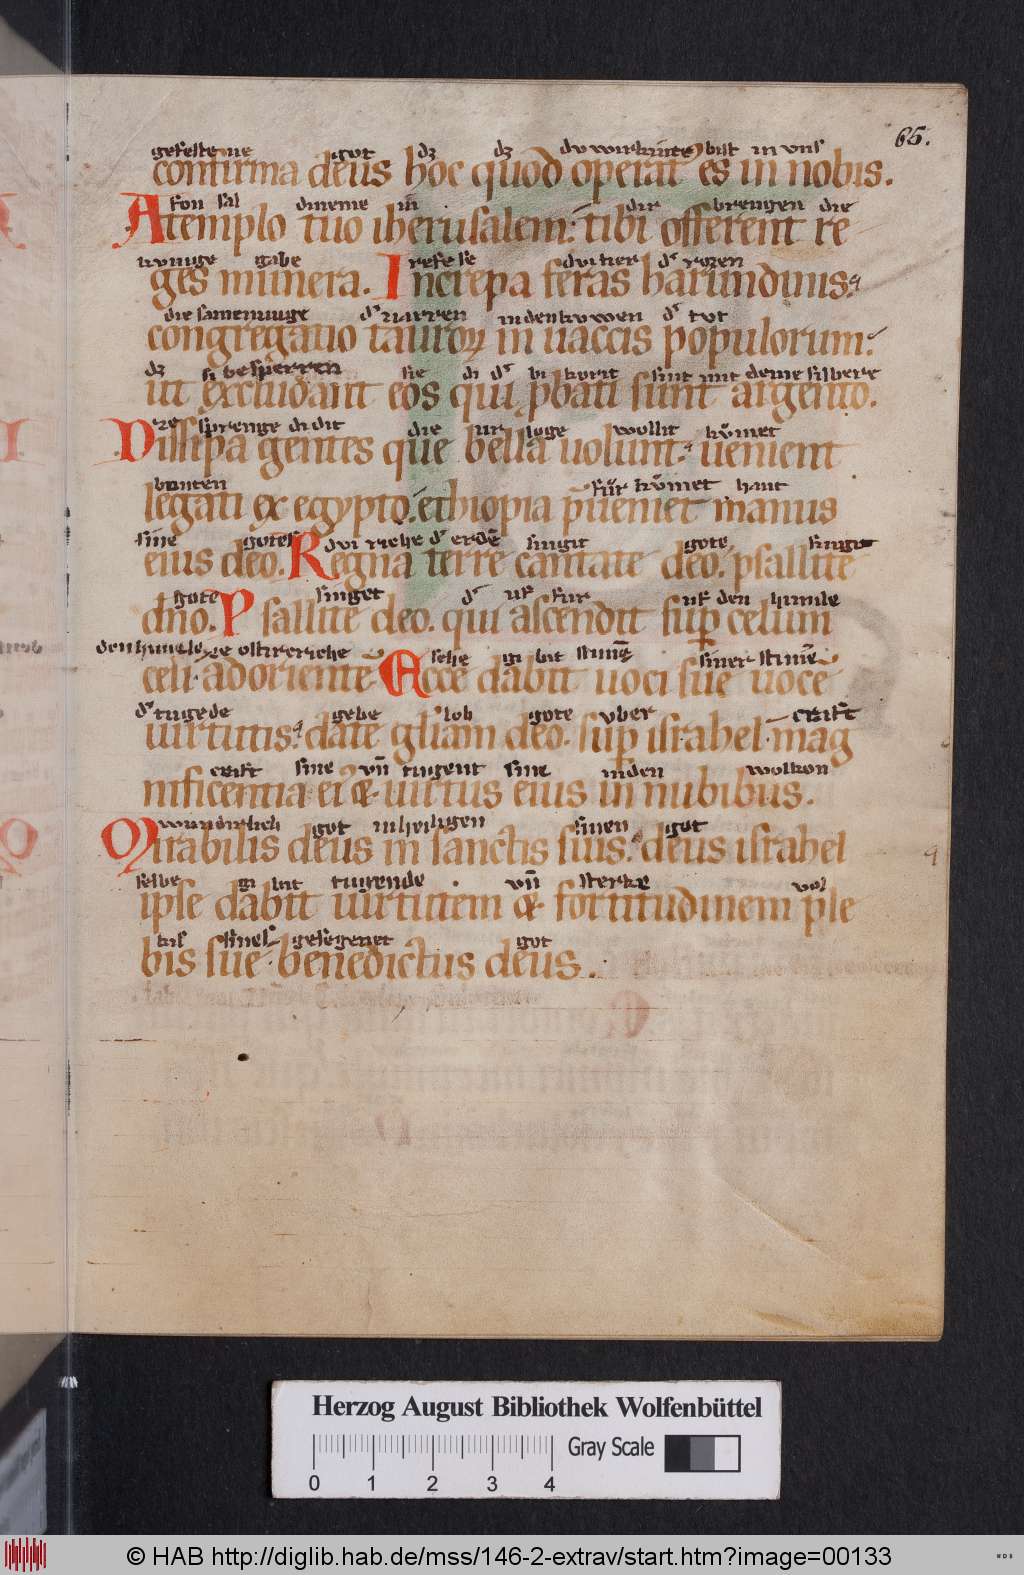 65.
gefestene got dz dz du wirkinte bist in uns
confirma deus hoc quod operat' es in nobis.
fon sal dineme in dir brengen die
A templo tuo iherusalem: tibi offerent re
kunige gabe refese dvi tier d' roren
ges munera. Increpa feras harundinis:
die samenunge d' varren in den kuwen d' lut
congregatio tauroꝝ in uaccis populorum:
dz si besperren sie di d' bi korit sint mit deme silbere
ut excludant eos qui ꝓbati sunt argento.
ze sprenge di dit die ur loge wollit kumet
Dissipa gentes que bella uolunt: uenient
bouten fur kumet hant
legati ex egypto: ethiopia p̄ueniet manus
sine gote dvi riche d' erde singit gote singit
eius deo. Regna terre cantate deo. psallite
gote singet d' uf fur uf den himile
dn̄o. Psallite deo. qui ascendit sup̄ celum
den himele ze ostireriche sehe gi bit stimē siner stimē
celi adorientē Ecce dabit uoci sue uocē
d' tugede gebe lob gote vber craft
uirtutis: date gl̄iam deo. sup̄ israhel mag
craft sine vn̄ tugent sine in den wolkon
nificentia ei' & uirtus eius in nubibus.
wundirlich got in heiligen sinen got
Mirabilis deus in sanctis suis: deus israhel
selbe gi bit tugende vn̄ sterke vol
ipse dabit uirtutem & fortitudinem ple
kis sines gesegenet got
bis sue: benedictus deus.
Herzog August Bibliothek Wolfenbüttel
Gray Scale
0 1 2 3 4
© HAB http://diglib.hab.de/mss/146-2-extrav/start.htm?image=00133